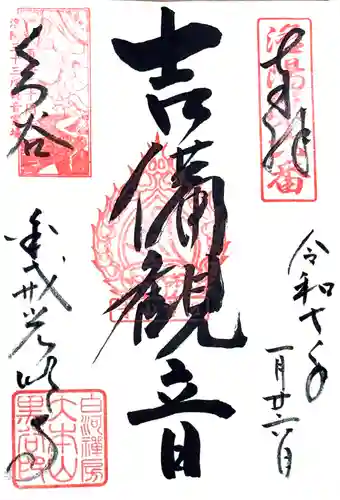 奉拝
令和七年
一月廿六日
吉備観音
くろ谷
金戒光明寺
白河禅房
大本山
黒谷